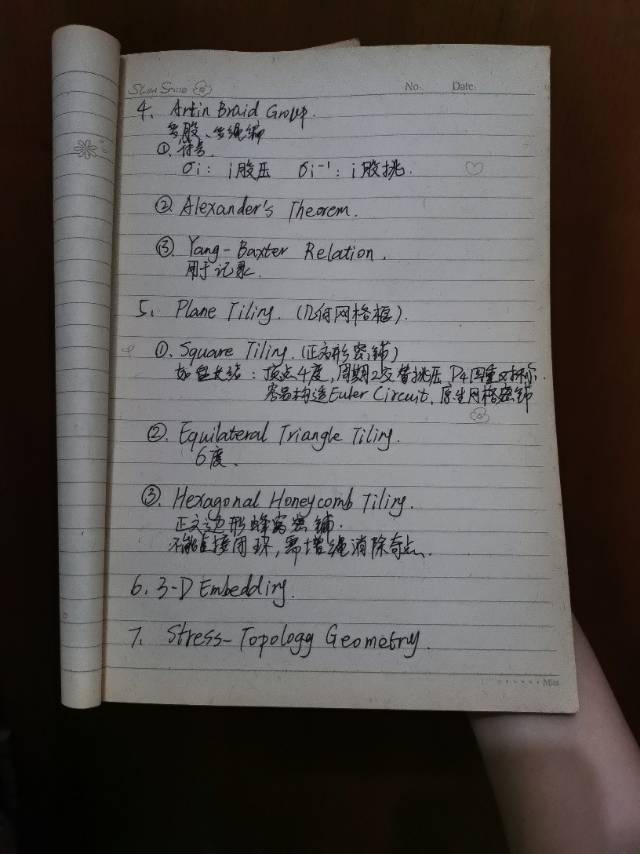 No. Date.
4、Artin Braid Group.
多股、多绳编
①、符号.
σi: i股压 σi⁻¹: i股挑.
② Alexander's Theorem.
③ Yang-Baxter Relation.
用于记录.
5、Plane Tiling. (几何网格框).
①、Square Tiling. (正方形密铺)
如盘长结: 顶点4度, 周期2交替挑压, D4四重对称.
容易构造Euler Circuit. 原生网格密铺
②. Equilateral Triangle Tiling.
6度、
③. Hexagonal Honeycomb Tiling.
正六边形蜂窝密铺.
不能直接闭环, 需增绳消除奇点.
6. 3-D Embedding.
7. Stress-Topology Geometry.